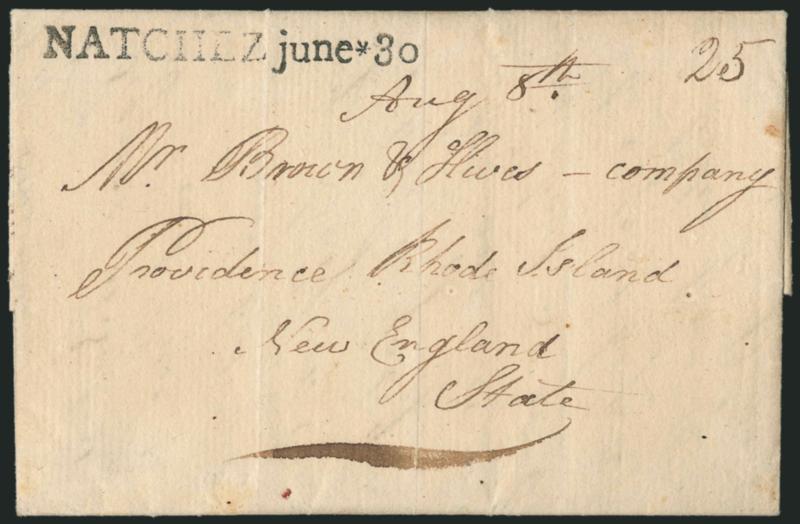 NATCHEZ june*30
25
Aug 8th.
Mr. Brown & Hives – company
Providence Rhode Island
New England
State